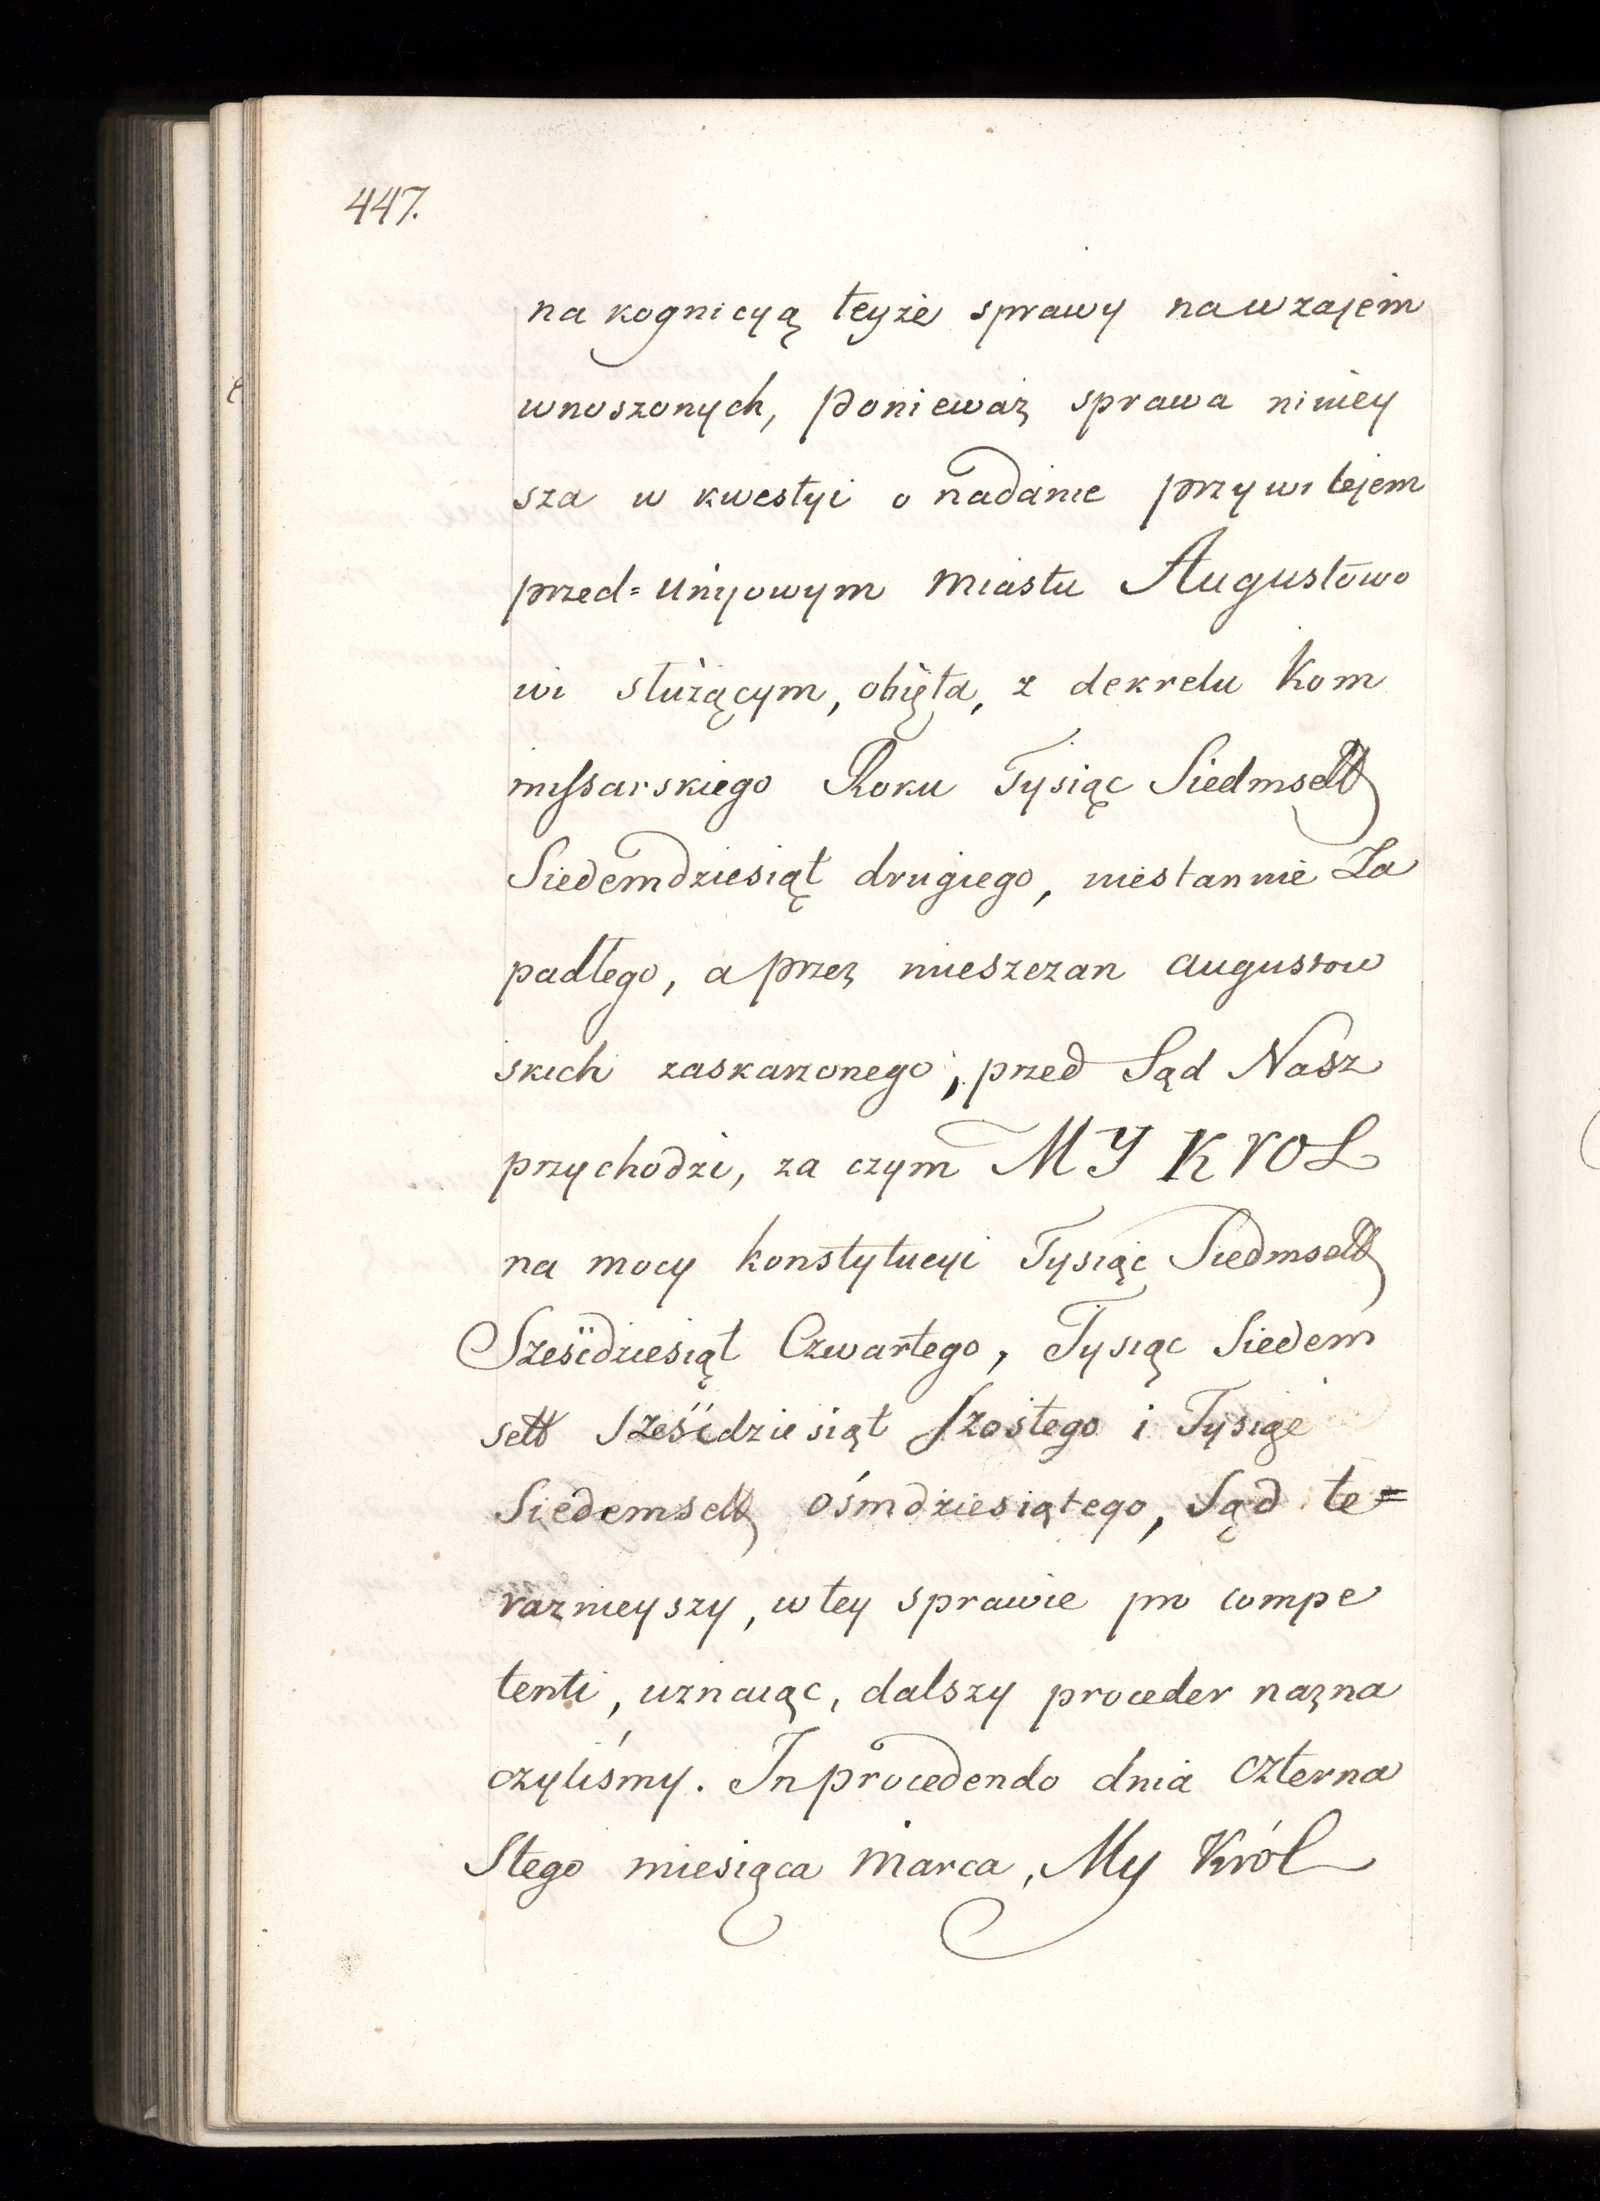 447.
na kognicyą teyże sprawy nawzajem
wnoszonych, ponieważ sprawa niniey
sza w kwestyi o nadanie przywilejem
przed=unijowym miastu Augustowo
wi służącym, obięta, z dekretu Kom
missarskiego Roku Tysiąc Siedmset
Siedemdziesiąt drugiego, niestannie Za
padłego, a przez mieszczan augustow
skich zaskarżonego, przed Sąd Nasz
przychodzi, za czym MY KROL
na mocy konstytucyi Tysiąc Siedmset
Sześćdziesiąt Czwartego, Tysiąc Siedem
set Sześćdziesiąt szostego i Tysiąc
Siedemset ośmdziesiątego, Sąd te=
raznieyszy, w tey sprawie pro compe
tenti, uznaiąc, dalszy proceder nazna
czyliśmy. In procedendo dnia czterna
Stego miesiąca marca, My Król